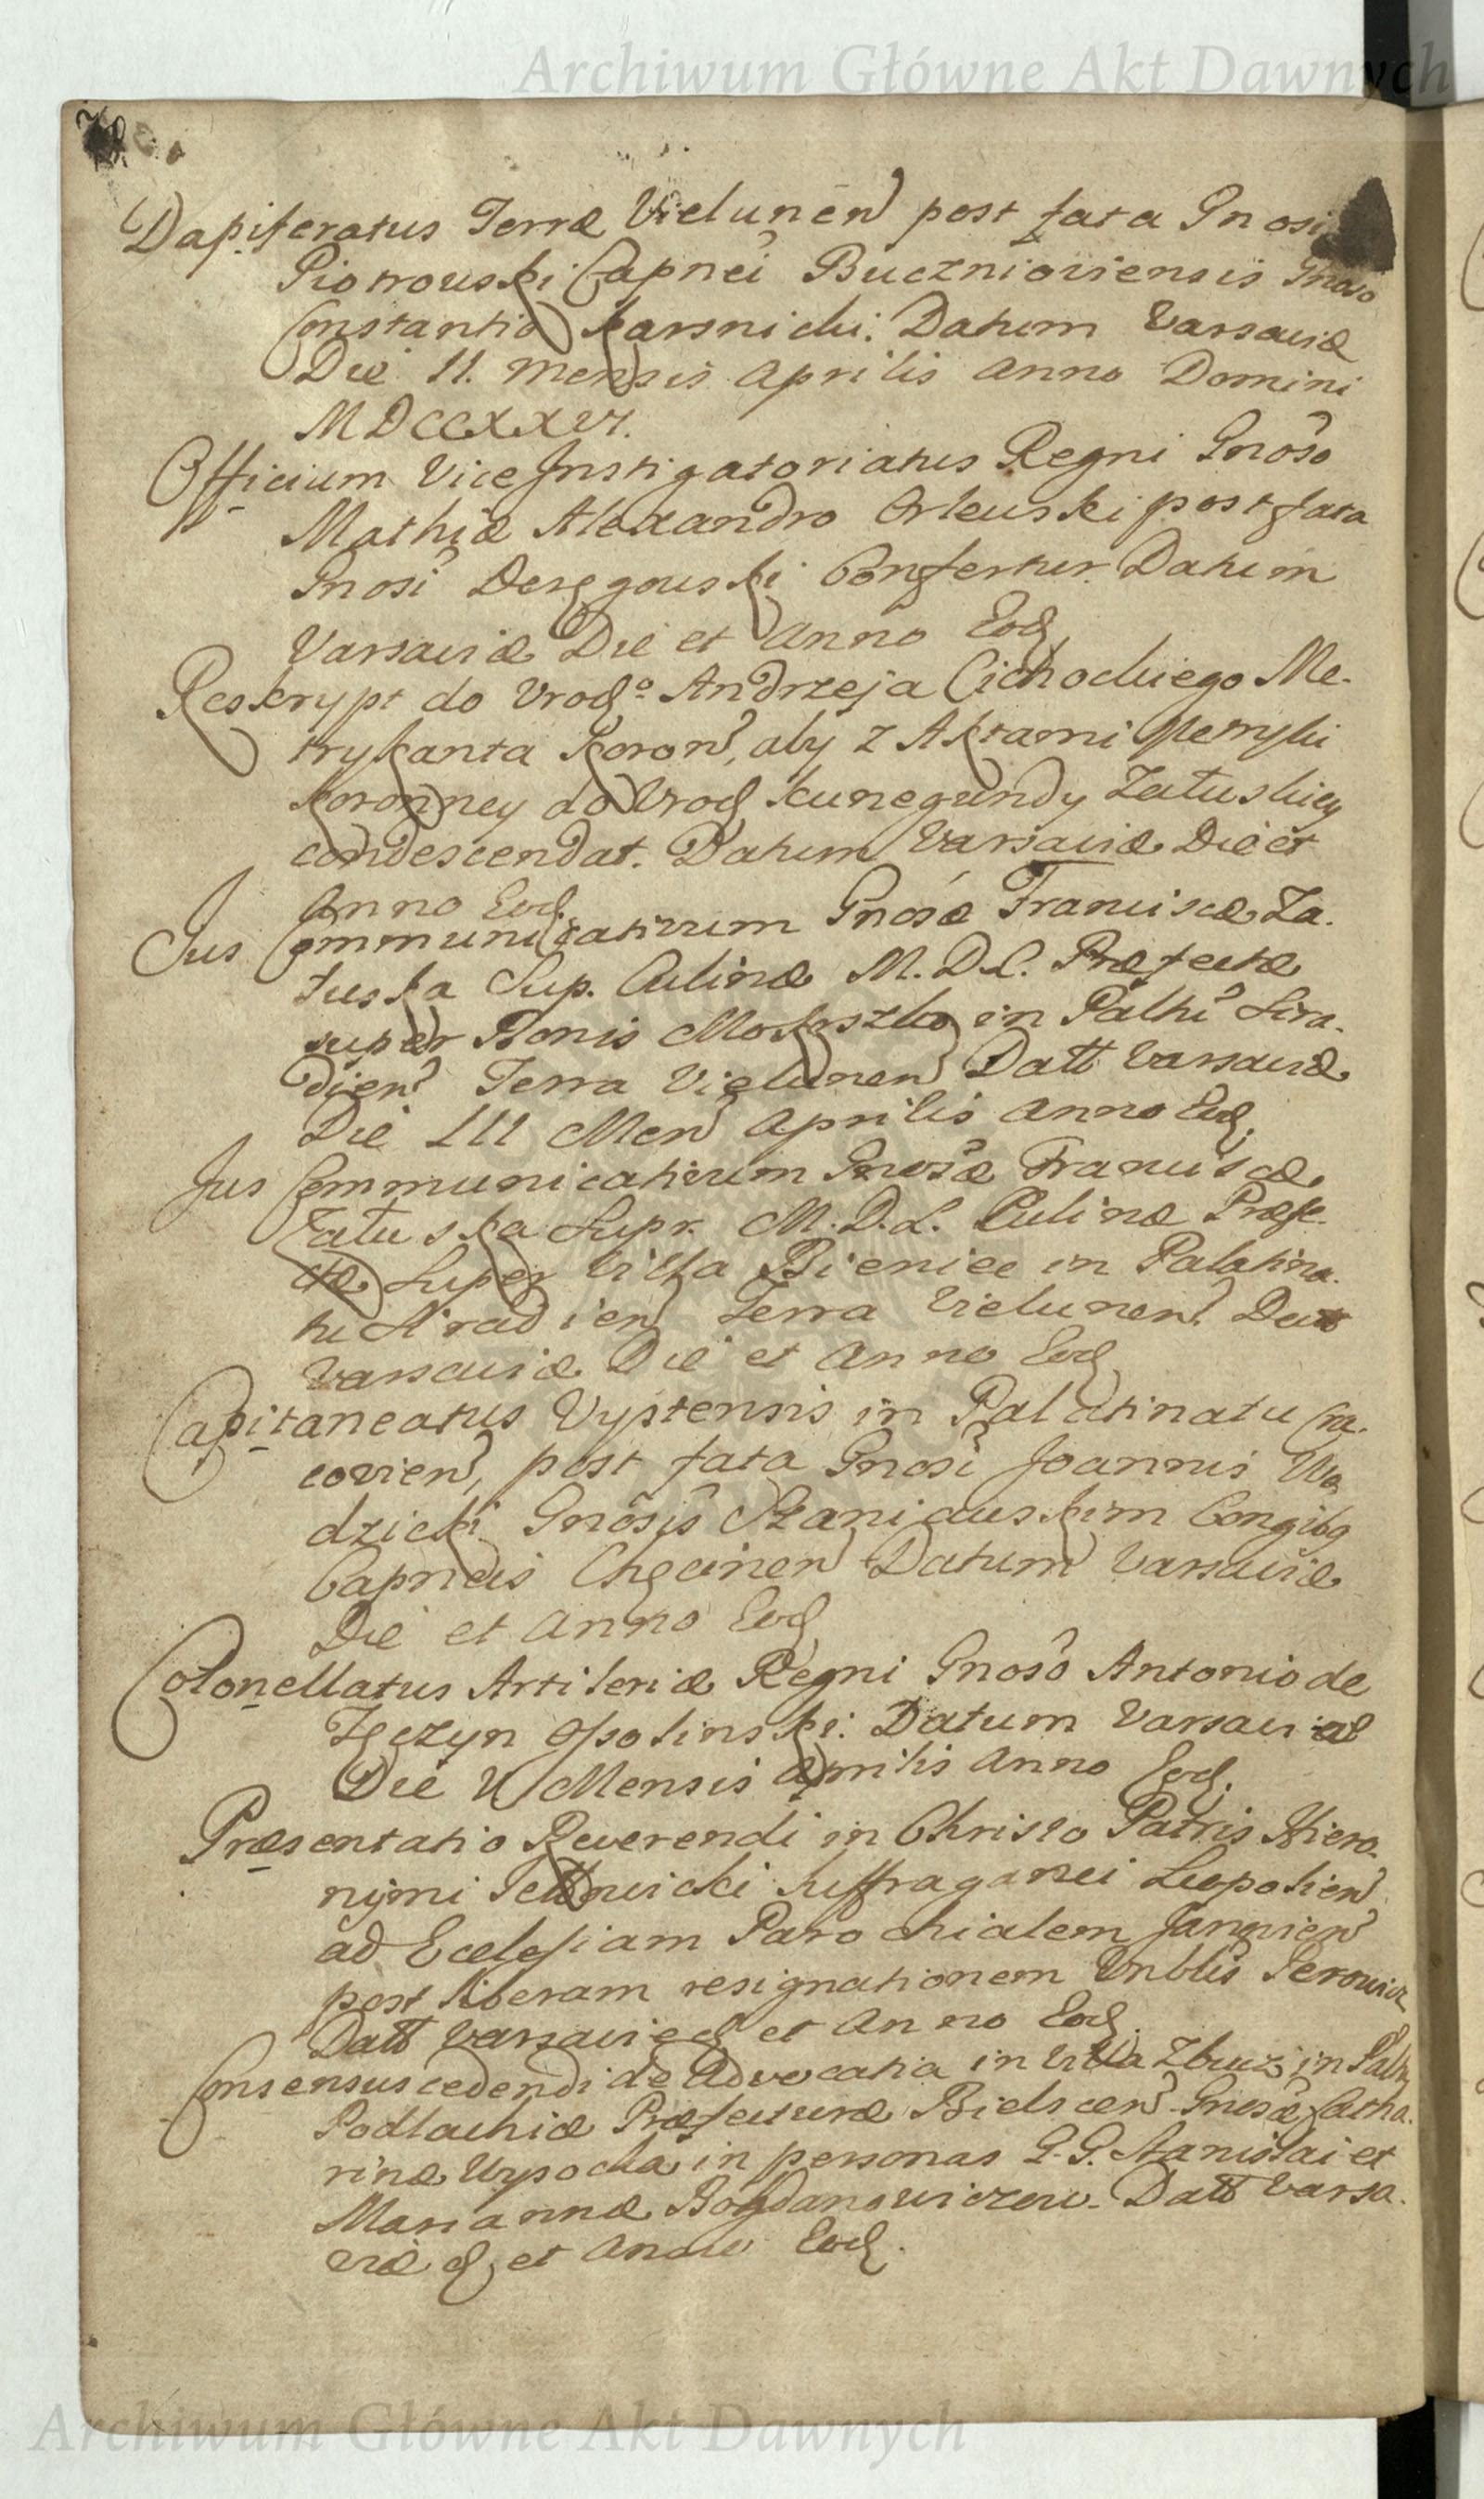 Archiwum Główne Akt Dawnych
Dapiferatus Terræ Vielunen post fata Gnosi
Piotrouski Capnei Bucznioviensis Gnoso
Constantio Karsnicki. Datum Varsaviæ
Die 11. Mensis Aprilis Anno Domini
MDCCXXVI.
Officium Vice Instigatoriatus Regni Gnoso
Mathiæ Alexandro Orleuski post fata
Gnosi Deręgouski Confertur. Datum
Varsaviæ Die et Anno Eod
Reskrypt do Urodo Andrzeja Cichockiego Me-
trykanta Koron, aby z Aktami Metryki
Koronney do Urod Kunegundy Załuskiey
condescendat. Datum Varsaviæ Die et
Anno Eod.
Jus Communicativum Gnosæ Franciscæ Za-
łuska Sup. Culinæ M.D.L. Præfectæ
super Bonis in Palttu Sira-
dien Terra Vielunen Datt Varsaviæ
Die III Men Aprilis Anno Eod.
Jus Communicativum Gnosæ Franciscæ
Załuska Supr. M.D.L. Culinæ Præfe-
ctæ Super Villa Bieniec in Palatina-
tu Siradien Terra Vielunen. Datt
Varsaviæ Die et Anno Eod
Capitaneatus Uystensis in Palatinatu Cra-
covien, post fata Gnosi Joannis Wo
dzicki Gnosis Szaniauskim Congibg
Capneis Chęcinen Datum Varsaviæ
Die et Anno Eod
Colonellatus Artileriæ Regni Gnoso Antonio de
Tęczyn Ossolinski. Datum Varsaviæ
Die V Mensis Aprilis Anno Eod.
Præsentatio Reverendi in Christo Patris Hiero-
nymi Suffraganei Leopolien
ad Ecclesiam Parochialem
post liberam resignationem Vnblis
Datt Varsavi ed et Anno Eod.
Consensus cedendi de Advocatia in Villa Zbucz in Palttu
Podlachiæ Præfecturæ Bielscen Gnosæ Catha-
rinæ Wysocka in personas G.G. Stanislai et
Mariannæ Bogdanowiczow. Datt Varsa-
viæ d, et Anno Eod.
Archiwum Główne Akt Dawnych